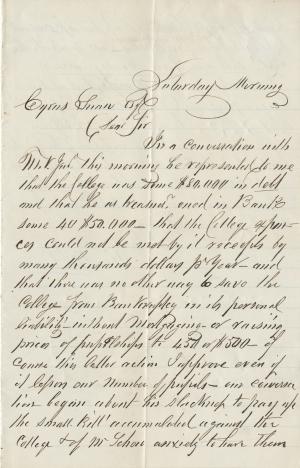 Saturday Morning
Cyrus Swan Esq
Dear Sir
In a conversation with
this morning he represented to me
that the College was some $80,000 in debt
and that he as owed in Bank
some 40 $50.000 - that the College expen-
ces could not be met by it receipts by
many thousands dollars pr Year - and
that there was no other way to save the
College from Bankruptcy in its personal
liability without Mortgaging or raising
price of to 450 or $500 - of
course this latter action I approve even if
it lessen our number of pupils - our conversa
tion began about his to pay up
the small Bill accumulated against the
College & of Mr anxiety to have them